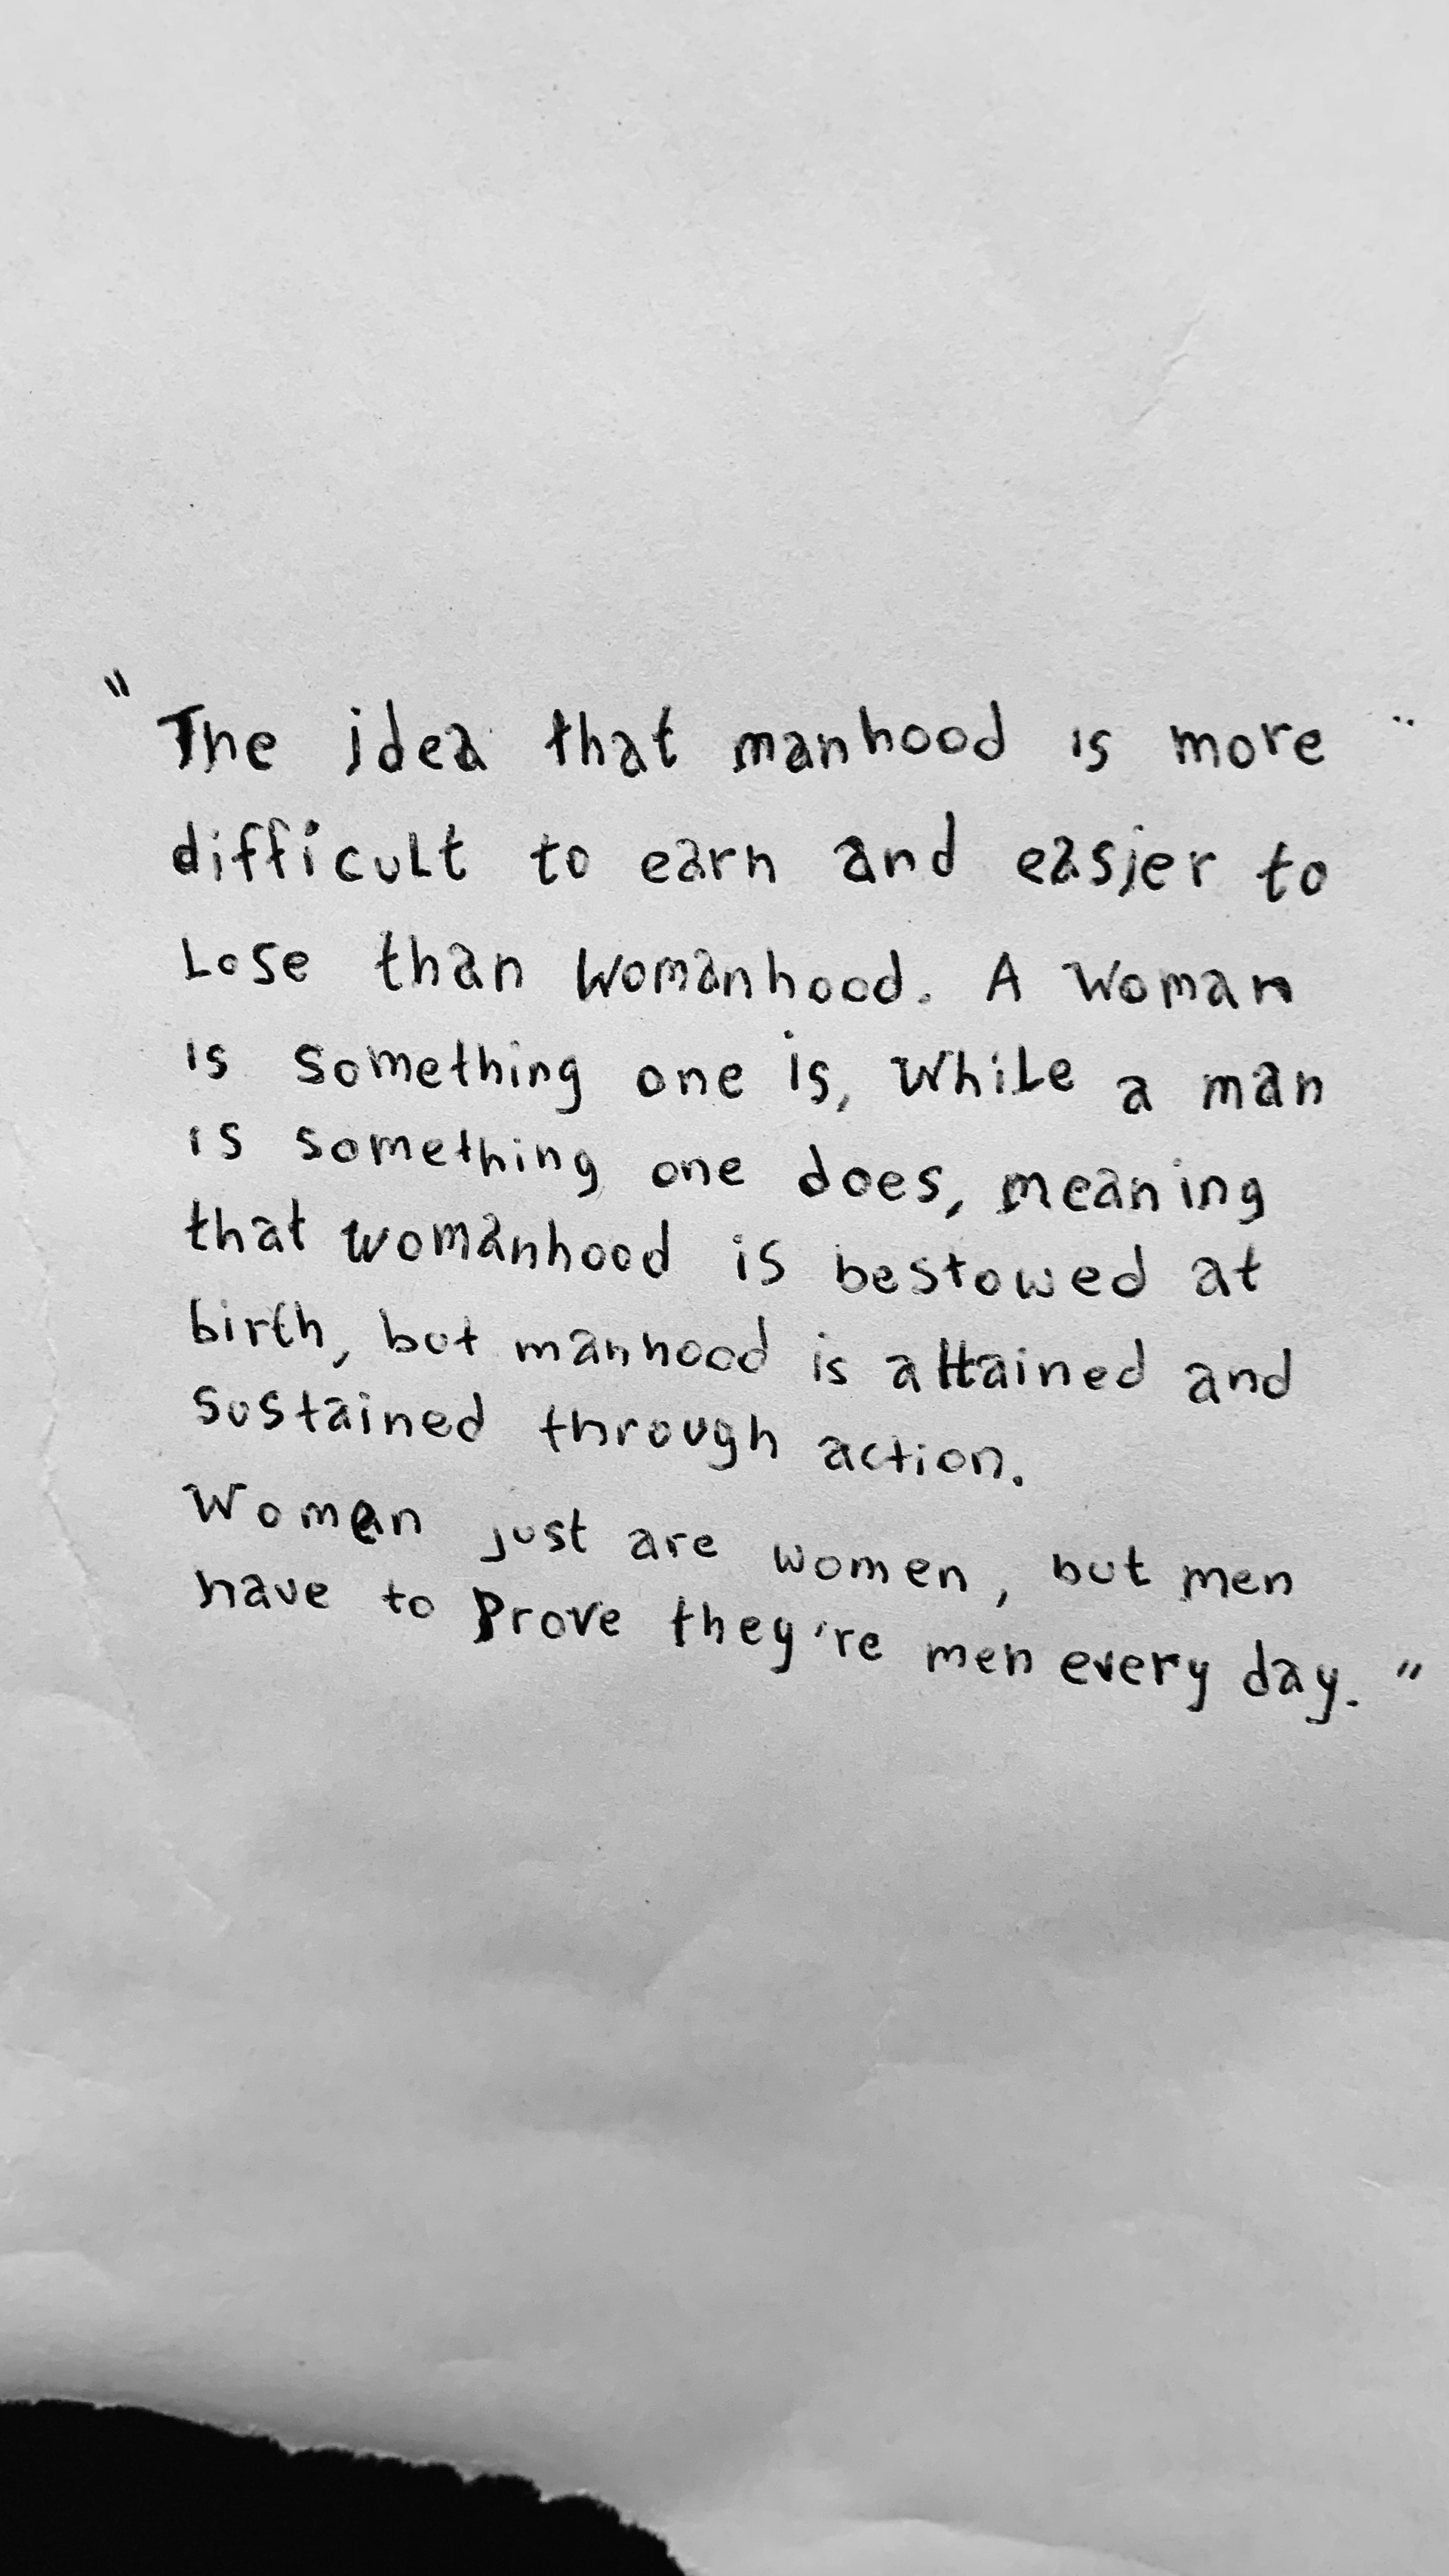 "The idea that manhood is more
difficult to earn and easier to
Lose than womanhood. A Woman
is something one is, While a man
is something one does, meaning
that womanhood is bestowed at
birth, but manhood is attained and
sustained through action.
Women just are women, but men
have to Prove they're men every day."